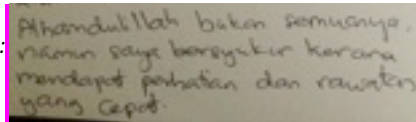 Alhamdulillah bukan semuanya.
namun saya bersyukur kerana
mendapat perhatian dan rawatan
yang cepat.